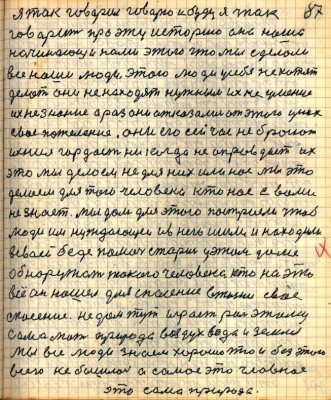 я так говорил говорю и буду я так 87
говорить про эту историю она наша
начинающи нами этого что мы сделали
все наши люди. этого люди у себя не хотят
делат они не находят нужным их не умение
их незнание а раз они отказали от этого у них
свое пожелание. они его сейчас не бросают
их ния гордост никогда не оправдает их
это мы делаем не для них или нас мы это
делаем для того человека кто нас с вами
не знает. мы дом для этого построели чтоб
люди им нуждающеи в нег шли и находили
в своей беде помощ старались у этом доме
обнаружат такого человека кто на это
всё он нашел для спасение в жизни свое
спасение. не дом тут играет рол этому
сама мат природа воздух вода и земля
мы все люди знаем хорошо что и без этого
всего не бы а самое это главное
это сама природа.